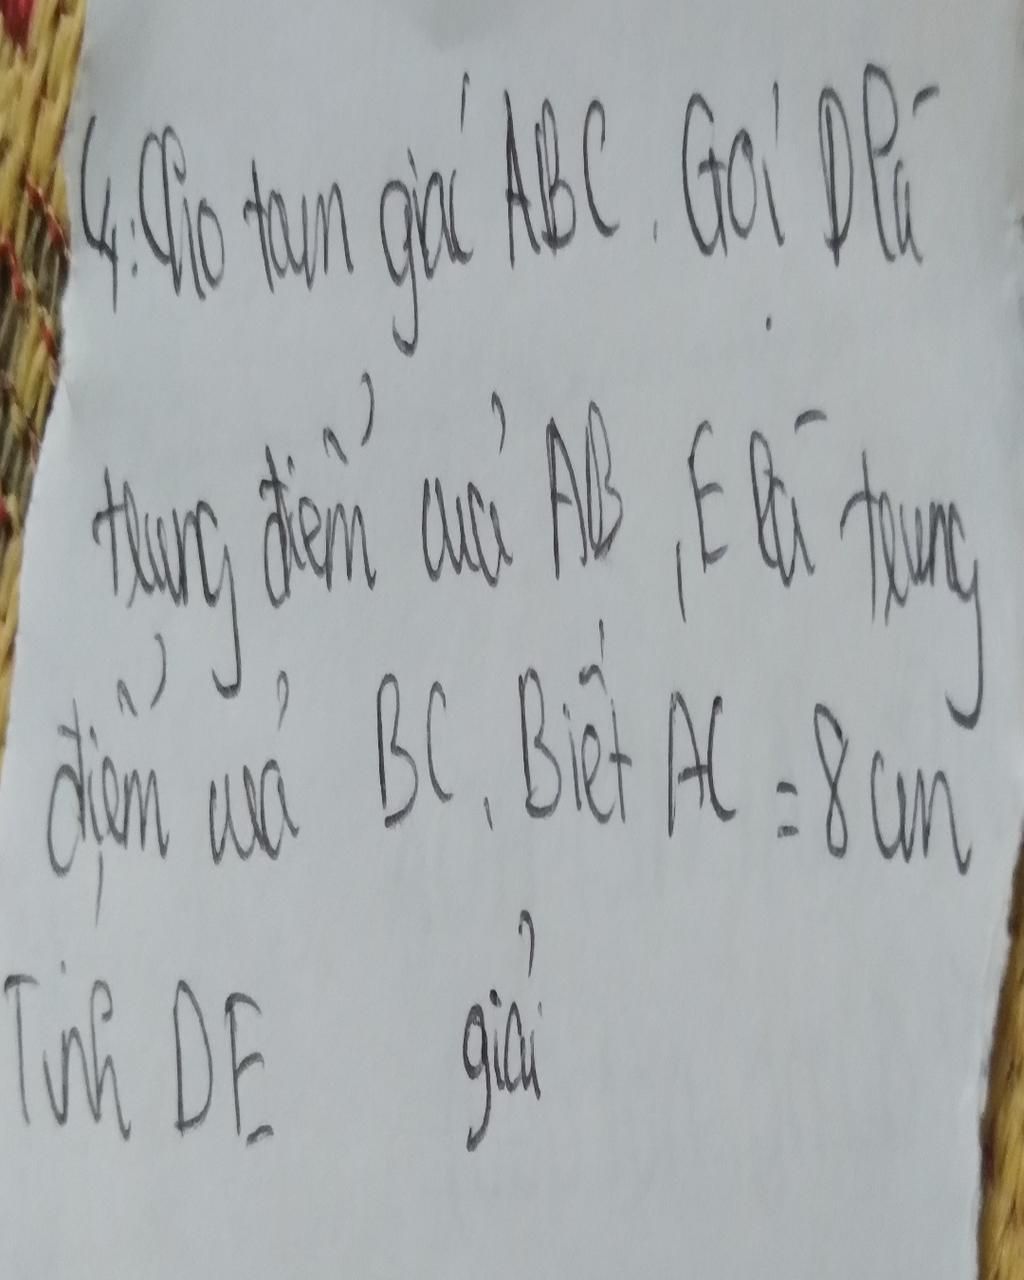 4. Cho tam giác ABC. Gọi D là
trung điểm của AB, E là trung
điểm của BC. Biết AC = 8 cm
Tính DE giải